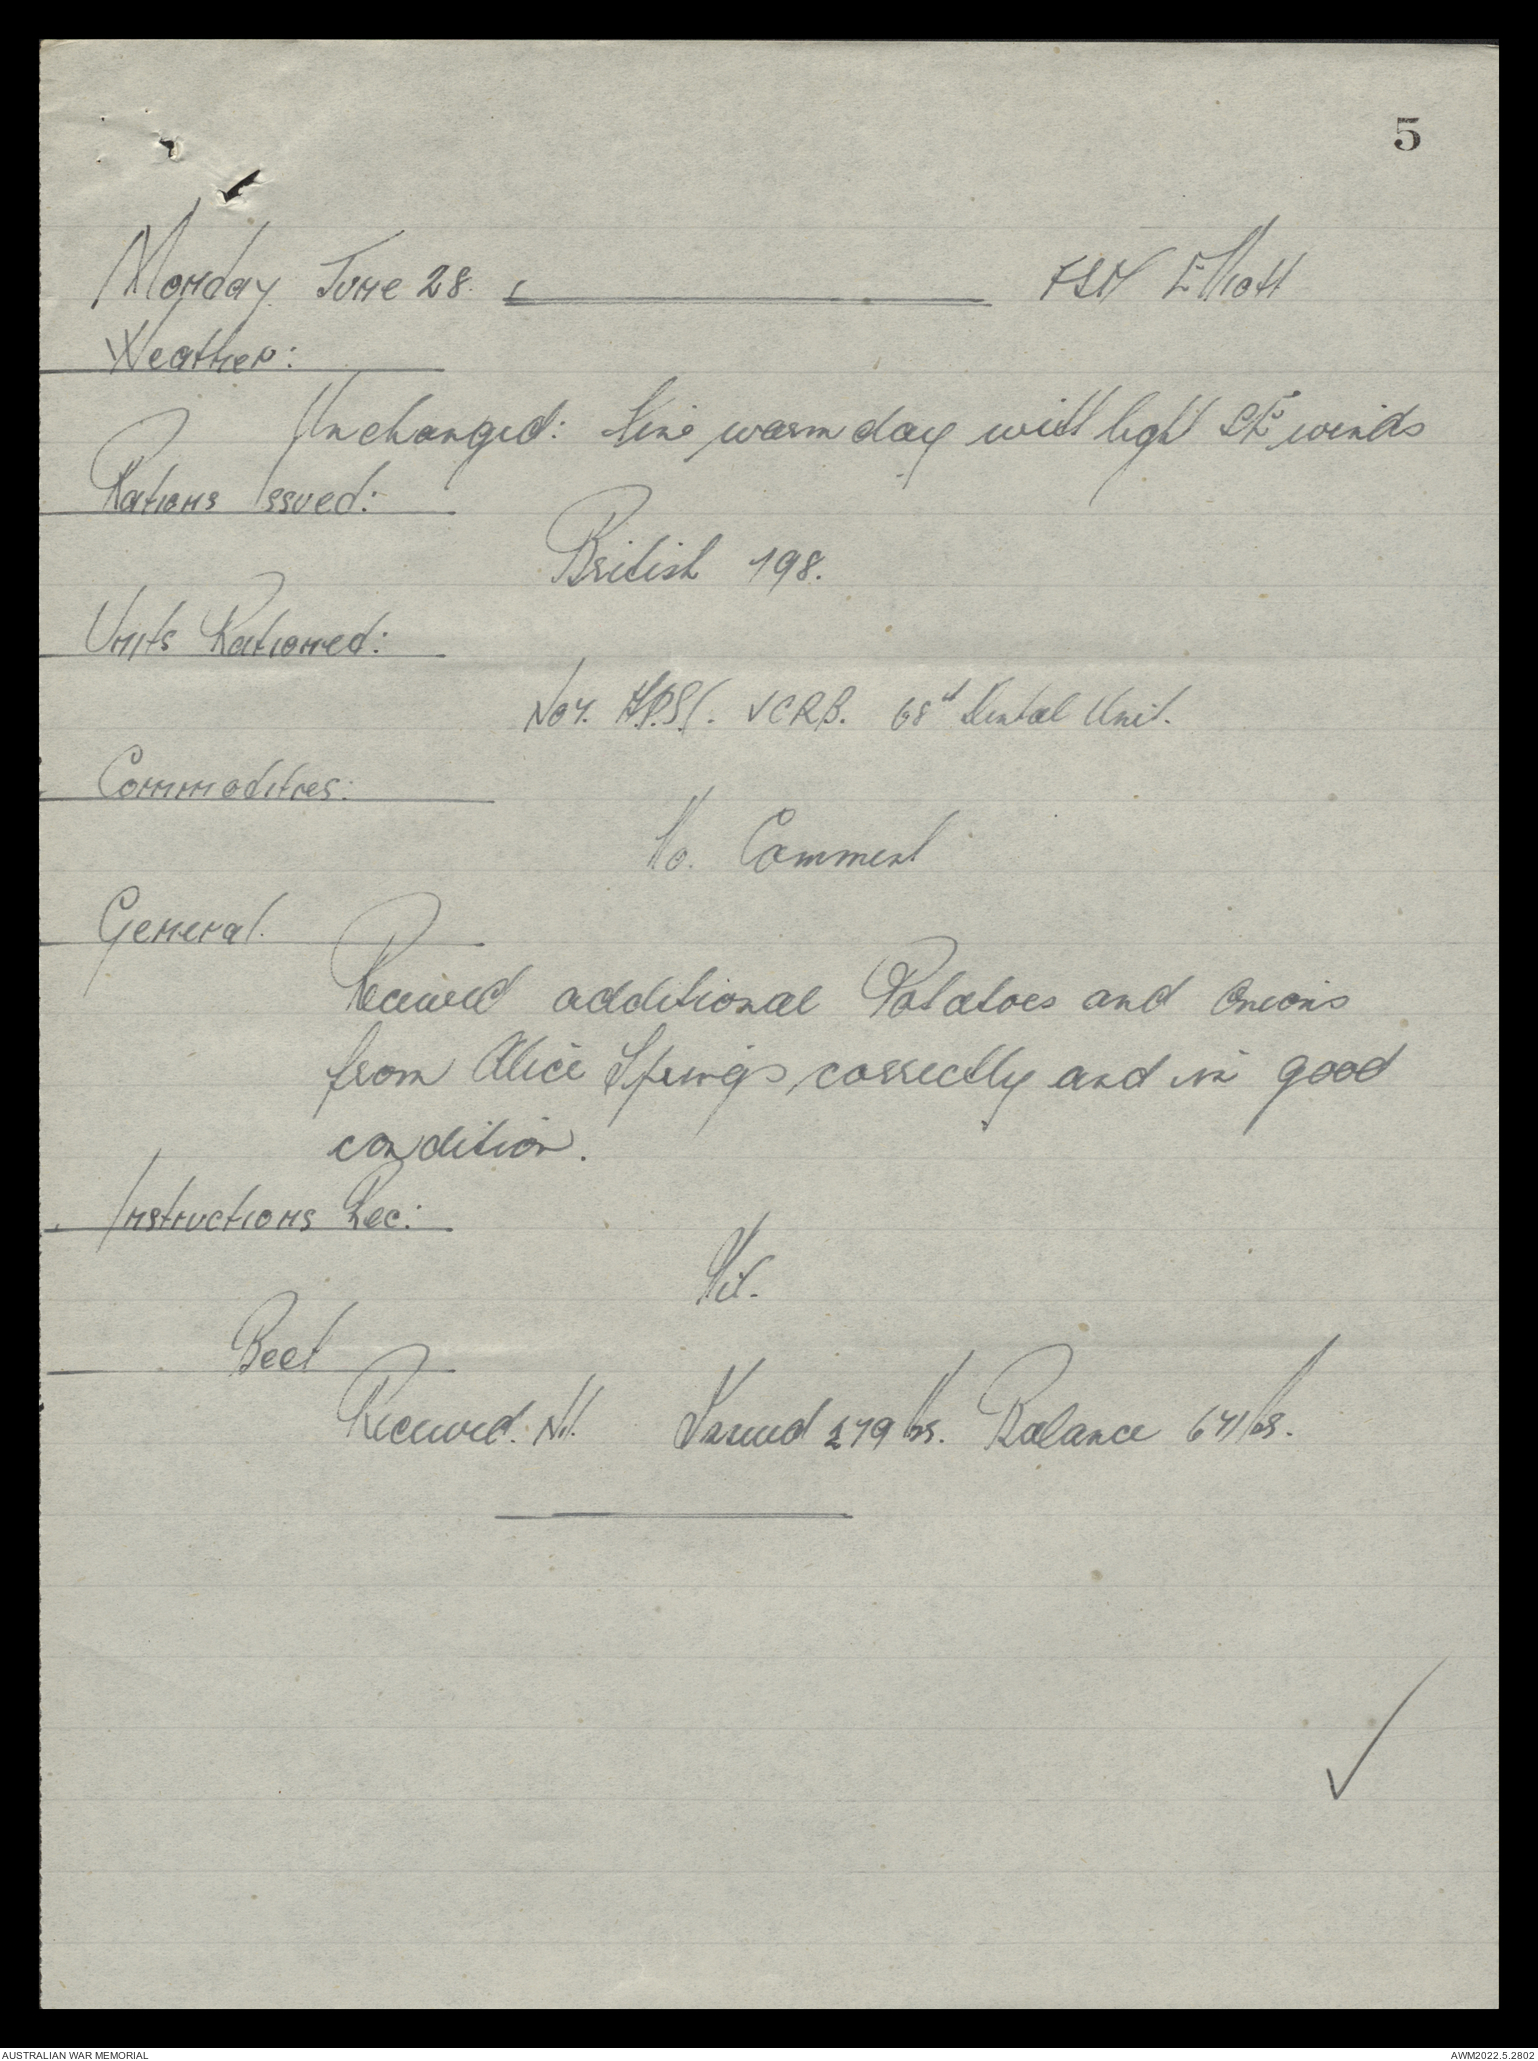 5
Monday June 28. FSD Elliott
Weather:
Unchanged: Fine warm day with light SE winds
Rations Issued:
British 198.
Units Rationed:
No 4. VCRB. 68th Dental Unit.
Commodities:
No. Comment
General.
Received additional Potatoes and Onions
from Alice Springs correctly and in good
condition.
Instructions Rec:
Nil.
Beef
Received. Nil. Issued lbs. Balance lbs.
AUSTRALIAN WAR MEMORIAL
AWM2022.5.2802